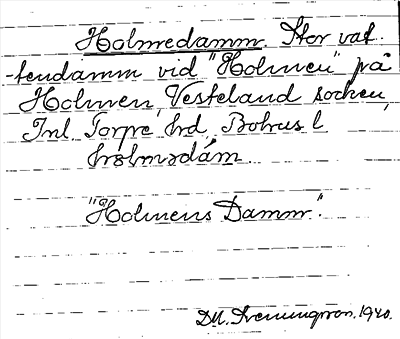 Holmedamm. Stor vat-
tendamm vid "Holmen" på
Holmen, Västerland socken,
Inl. Torpe hd, Bohus l.
hɔlmədám
"Holmens Damm".
D.M. 1940.